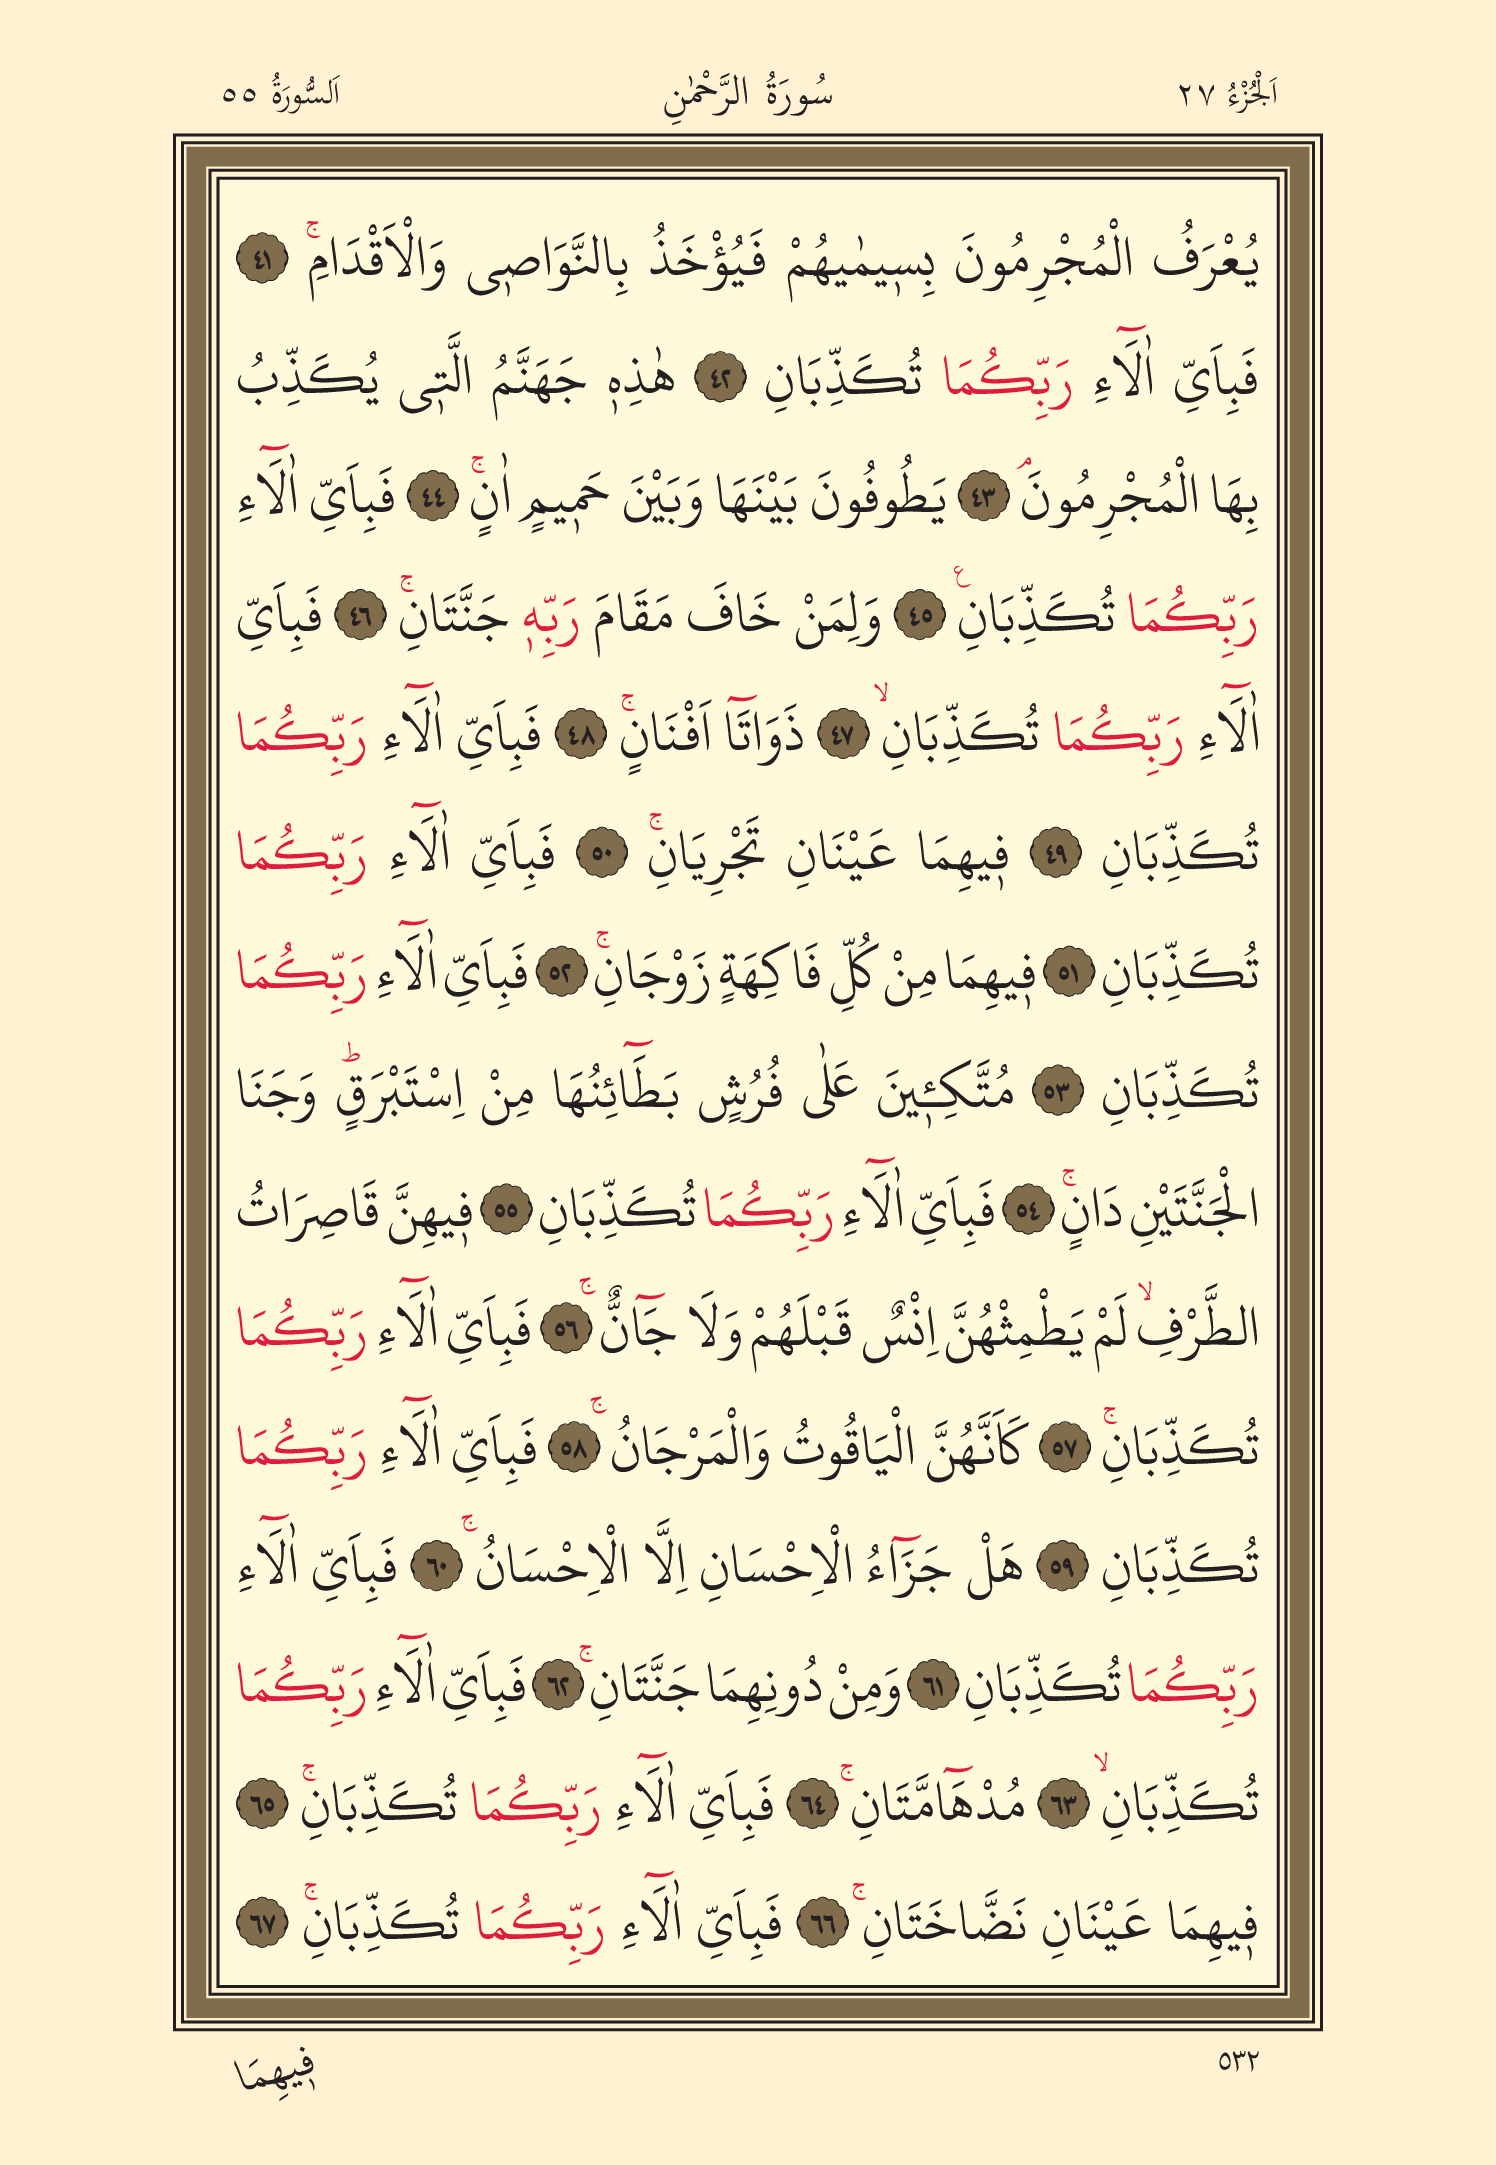 اَلْجُزْءُ ٢٧ سُورَةُ الرَّحْمٰنِ اَلسُّورَةُ ٥٥
يُعْرَفُ الْمُجْرِمُونَ بِس۪يمٰيهُمْ فَيُؤْخَذُ بِالنَّوَاص۪ي وَالْاَقْدَامِۚ ﴿٤١﴾
فَبِاَيِّ اٰلَٓاءِ رَبِّكُمَا تُكَذِّبَانِ ﴿٤٢﴾ هٰذِه۪ جَهَنَّمُ الَّت۪ي يُكَذِّبُ
بِهَا الْمُجْرِمُونَۢ ﴿٤٣﴾ يَطُوفُونَ بَيْنَهَا وَبَيْنَ حَم۪يمٍ اٰنٍۚ ﴿٤٤﴾ فَبِاَيِّ اٰلَٓاءِ
رَبِّكُمَا تُكَذِّبَانِ۟ ﴿٤٥﴾ وَلِمَنْ خَافَ مَقَامَ رَبِّه۪ جَنَّتَانِۚ ﴿٤٦﴾ فَبِاَيِّ
اٰلَٓاءِ رَبِّكُمَا تُكَذِّبَانِۙ ﴿٤٧﴾ ذَوَاتَٓا اَفْنَانٍۚ ﴿٤٨﴾ فَبِاَيِّ اٰلَٓاءِ رَبِّكُمَا
تُكَذِّبَانِ ﴿٤٩﴾ ف۪يهِمَا عَيْنَانِ تَجْرِيَانِۚ ﴿٥٠﴾ فَبِاَيِّ اٰلَٓاءِ رَبِّكُمَا
تُكَذِّبَانِ ﴿٥١﴾ ف۪يهِمَا مِنْ كُلِّ فَاكِهَةٍ زَوْجَانِۚ ﴿٥٢﴾ فَبِاَيِّ اٰلَٓاءِ رَبِّكُمَا
تُكَذِّبَانِ ﴿٥٣﴾ مُتَّكِـ۪ٔينَ عَلٰى فُرُشٍ بَطَٓائِنُهَا مِنْ اِسْتَبْرَقٍۜ وَجَنَا
الْجَنَّتَيْنِ دَانٍۚ ﴿٥٤﴾ فَبِاَيِّ اٰلَٓاءِ رَبِّكُمَا تُكَذِّبَانِ ﴿٥٥﴾ ف۪يهِنَّ قَاصِرَاتُ
الطَّرْفِۙ لَمْ يَطْمِثْهُنَّ اِنْسٌ قَبْلَهُمْ وَلَا جَٓانٌّۚ ﴿٥٦﴾ فَبِاَيِّ اٰلَٓاءِ رَبِّكُمَا
تُكَذِّبَانِۚ ﴿٥٧﴾ كَاَنَّهُنَّ الْيَاقُوتُ وَالْمَرْجَانُۚ ﴿٥٨﴾ فَبِاَيِّ اٰلَٓاءِ رَبِّكُمَا
تُكَذِّبَانِ ﴿٥٩﴾ هَلْ جَزَٓاءُ الْاِحْسَانِ اِلَّا الْاِحْسَانُۚ ﴿٦٠﴾ فَبِاَيِّ اٰلَٓاءِ
رَبِّكُمَا تُكَذِّبَانِ ﴿٦١﴾ وَمِنْ دُونِهِمَا جَنَّتَانِۚ ﴿٦٢﴾ فَبِاَيِّ اٰلَٓاءِ رَبِّكُمَا
تُكَذِّبَانِۙ ﴿٦٣﴾ مُدْهَٓامَّتَانِۚ ﴿٦٤﴾ فَبِاَيِّ اٰلَٓاءِ رَبِّكُمَا تُكَذِّبَانِۚ ﴿٦٥﴾
ف۪يهِمَا عَيْنَانِ نَضَّاخَتَانِۚ ﴿٦٦﴾ فَبِاَيِّ اٰلَٓاءِ رَبِّكُمَا تُكَذِّبَانِۚ ﴿٦٧﴾
٥٣٢ ف۪يهِمَا